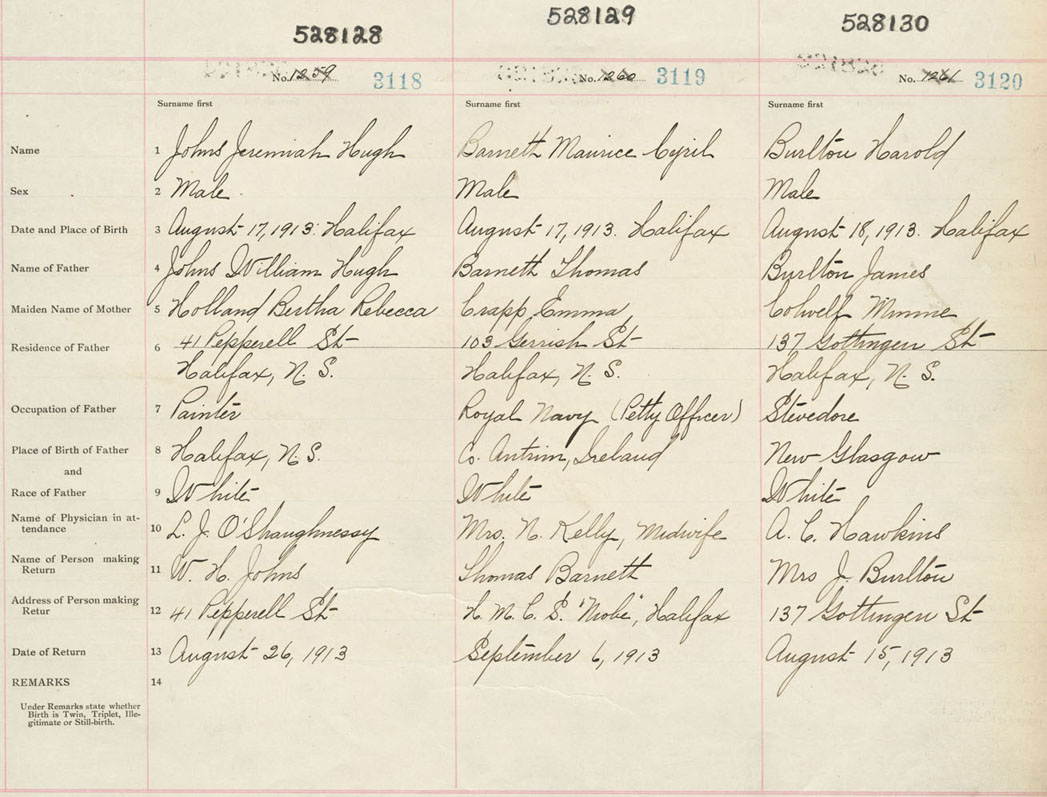 528128 528129 528130
No. 1259 3118 No. 1260 3119 No. 1261 3120
Surname first Surname first Surname first
Name 1 Johns Jeremiah Hugh Barnett Maurice Cyril Burlton Harold
Sex 2 Male Male Male
Date and Place of Birth 3 August 17, 1913. Halifax August 17, 1913. Halifax August 18, 1913. Halifax
Name of Father 4 Johns William Hugh Barnett Thomas Burlton James
Maiden Name of Mother 5 Holland Bertha Rebecca Crapp, Emma Colwell Minnie
Residence of Father 6 41 Pepperell St 103 Gerrish St 137 Gottingen St
Halifax, N.S. Halifax, N.S. Halifax, N.S.
Occupation of Father 7 Painter Royal Navy (Petty Officer) Stevedore
Place of Birth of Father 8 Halifax, N.S. Co. Antrim, Ireland New Glasgow
and
Race of Father 9 White White White
Name of Physician in at-
tendance 10 L. J. O'Shaughnessy Mrs. N. Kelly, Midwife A. C. Hawkins
Name of Person making
Return 11 W. H. Johns Thomas Barnett Mrs J. Burlton
Address of Person making
Retur 12 41 Pepperell St H.M.C.S. "Niobe", Halifax 137 Gottingen St
Date of Return 13 August 26, 1913 September 6, 1913 August 15, 1913
REMARKS 14
Under Remarks state whether
Birth is Twin, Triplet, Ille-
gitimate or Still-birth.